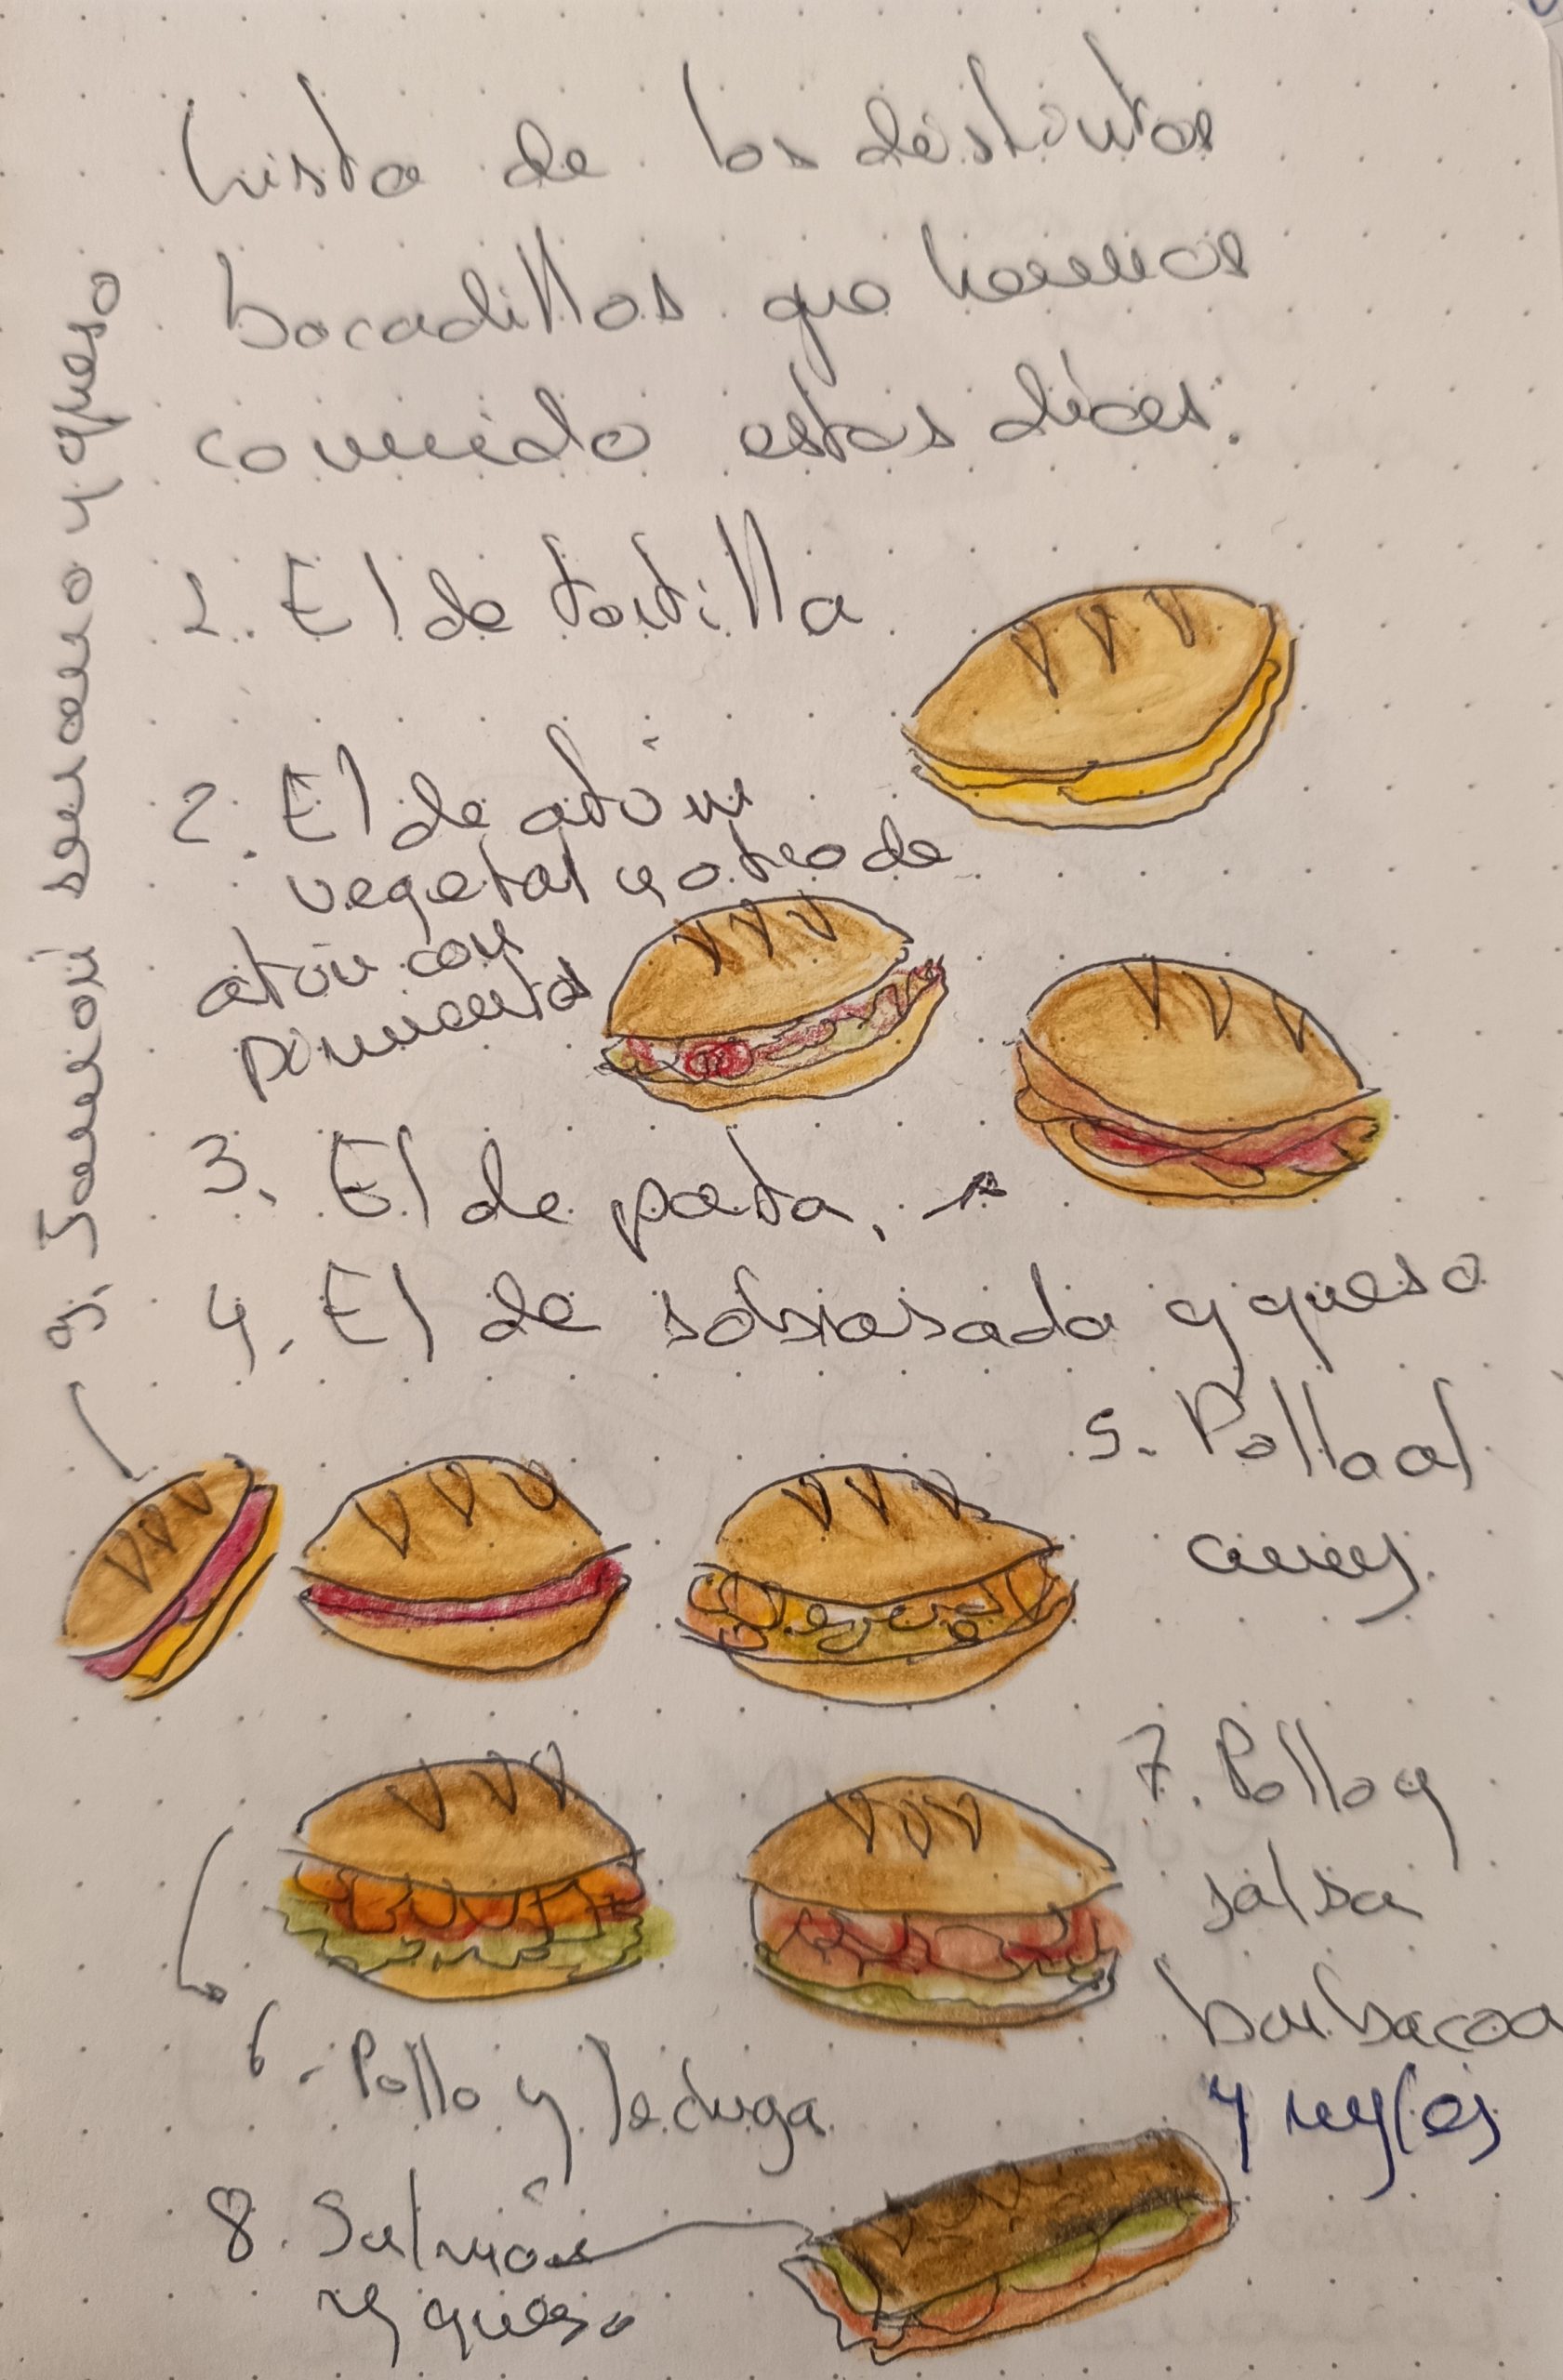 Lista de los distintos
bocadillos que hemos
comido estos días.
1. El de tortilla
2. El de atún
vegetal y otro de
atún con
pimientos
3. El de pata.
4. El de sobrasada y queso
5. Pollo al
curry.
6. Pollo y lechuga
7. Pollo y
salsa
barbacoa
8. Salmón
y queso
9. Jamón serrano y queso